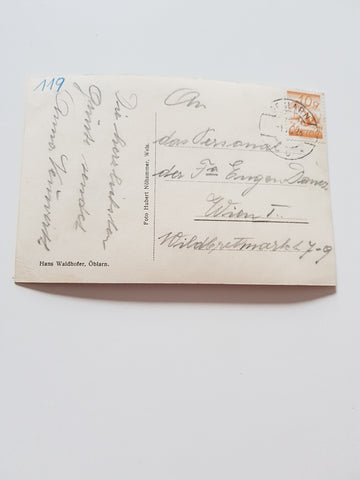 119
Die herzlichsten
Grüße sendet
Anna
Foto Hubert Nilhammer, Wels.
Hans Waldhofer, Öblarn.
10g
An
das Personal
der Fa Eugen
Wien I.
Wildpretmarkt 7-9